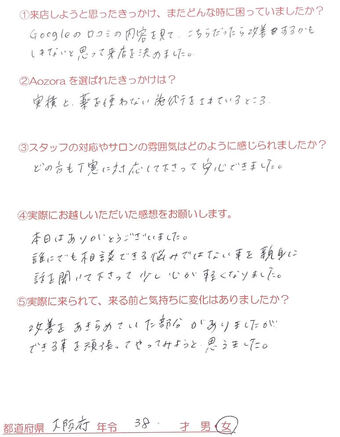 ①来店しようと思ったきっかけ、またどんな時に困っていましたか？
Googleの口コミの内容を見て、こちらだったら改善するかも
しれないと思って来店を決めました。
②Aozoraを選ばれたきっかけは？
実績と、薬を使わない施術をされているところ
③スタッフの対応やサロンの雰囲気はどのように感じられましたか？
どの方も丁寧に対応して下さって安心できました。
④実際にお越しいただいた感想をお願いします。
本日はありがとうございました。
誰にでも相談できる悩みではない事を親身に
話を聞いて下さって少し心が軽くなりました。
⑤実際に来られて、来る前と気持ちに変化はありましたか？
改善をあきらめていた部分がありましたが
できる事を頑張ってやってみようと思うました。
都道府県 大阪府 年令 38. 才 男 女